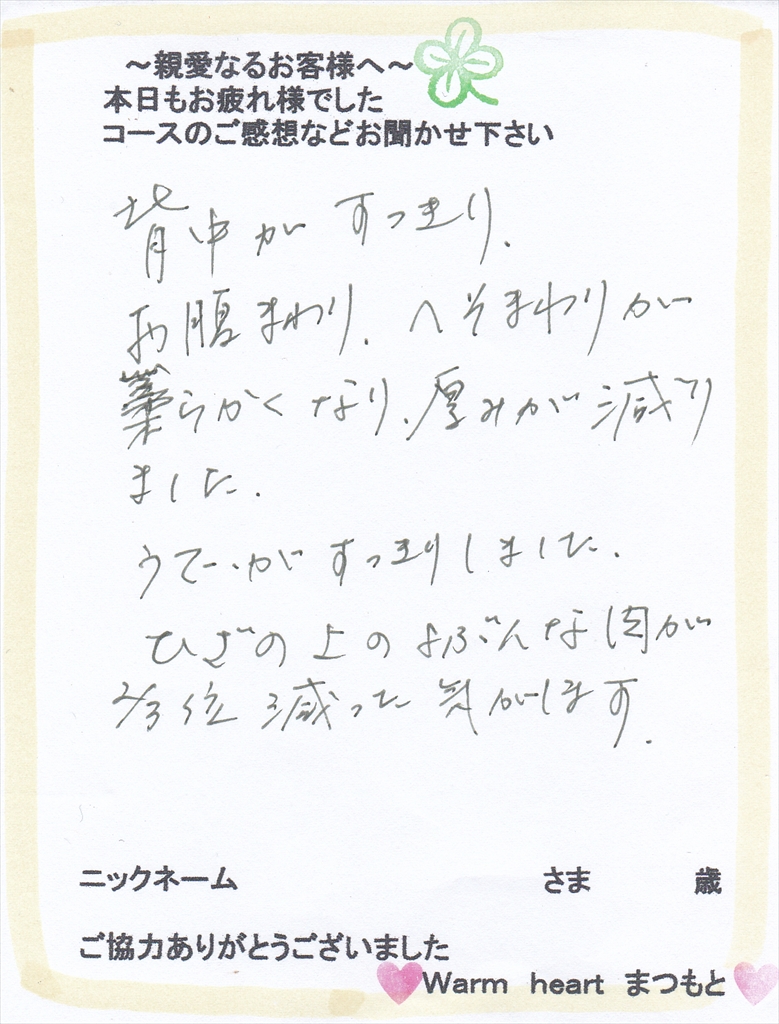 ～親愛なるお客様へ～
本日もお疲れ様でした
コースのご感想などお聞かせ下さい
背中が すっきり.
お腹まわり. へそまわりが
らかくなり、厚みが減り
ました.
うでがすっきりしました.
ひざの上のよぶんな肉が
2/3位 減った気がします.
ニックネーム さま 歳
ご協力ありがとうございました
Warm heart まつもと